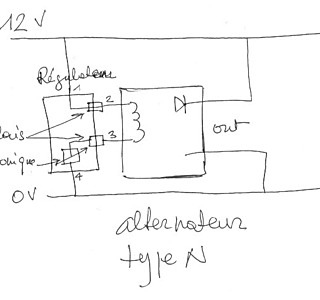 12 V
Régulateur
1
2
3
out
4
0V
alternateur
type N